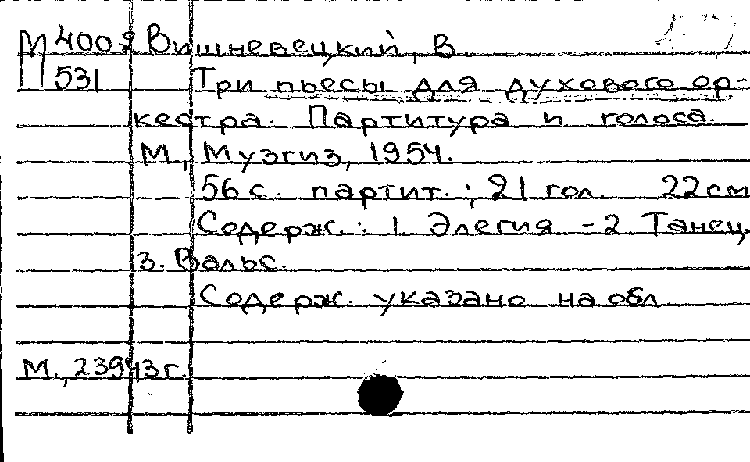 М400 Вишневецкий, В.
531 Три пьесы для духового ор-
кестра. Партитура и голоса.
М., Музгиз, 1954.
56 с. партит.; 21 гол. 22 см
Содерж.: 1. Элегия - 2 Танец.
3. Вальс.
Содерж. указано на обл.
М., 23943 г.